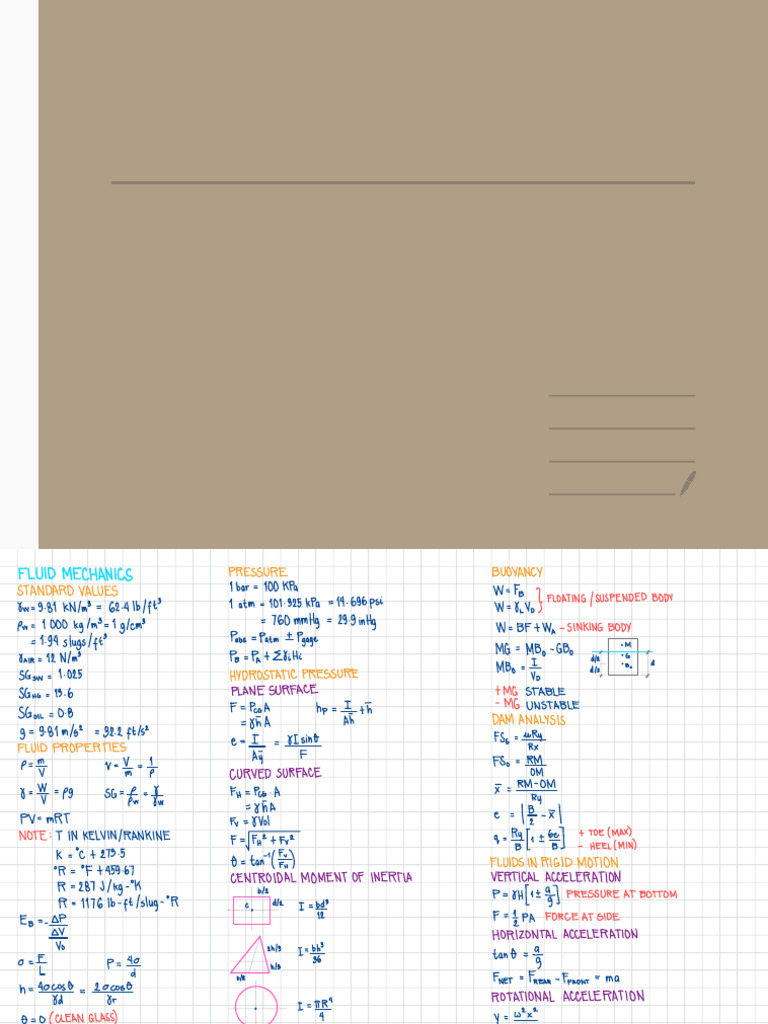 FLUID MECHANICS
STANDARD VALUES
γw = 9.81 KN/m³ = 62.4 lb/ft³
ρw = 1 000 kg/m³ = 1 g/cm³
= 1.94 slugs/ft³
γAIR = 12 N/m³
SG SW = 1.025
SG HG = 13.6
SG OIL = 0.8
g = 9.81 m/s² = 32.2 ft/s²
FLUID PROPERTIES
ρ = m/V    V = V/m = 1/ρ
γ = W/V = ρg    SG = ρ/ρw = γ/γw
PV = mRT
NOTE: T IN KELVIN/RANKINE
K = °C + 273.5
°R = °F + 459.67
R = 287 J/kg-°K
R = 1176 lb-ft/slug-°R
E_B = -ΔP / (ΔV/V₀)
σ = F/L    P = 4σ/d
h = 4σcosθ/γd = 2σcosθ/γr
θ = 0 (CLEAN GLASS)
PRESSURE
1 bar = 100 KPa
1 atm = 101.325 kPa = 14.696 psi
= 760 mmHg = 29.9 inHg
Pabs = Patm ± Pgage
P_B = P_A + ΣγiHi
HYDROSTATIC PRESSURE
PLANE SURFACE
F = P_CG A    hp = I/Ah̄ + h̄
= γh̄A
e = I/Aȳ = γI sinθ/F
CURVED SURFACE
F_H = P_CG · A
= γh̄A
F_V = γVol
F = √(F_H² + F_V²)
θ = tan⁻¹(F_V/F_H)
CENTROIDAL MOMENT OF INERTIA
b/2
C    d/2    I = bd³/12
2h/3
h/3
b/2    I = bh³/36
I = πR⁴/4
BUOYANCY
W = F_B
W = γ_L V_D    FLOATING/SUSPENDED BODY
W = BF + W_A - SINKING BODY
MG = MB₀ - GB₀
MB₀ = I/V_D
M
G
B₀
d/2
d/2
d
+MG STABLE
- MG UNSTABLE
DAM ANALYSIS
FS_S = μRy/Rx
FS_O = RM/OM
x̄ = RM-OM/Ry
e = |B/2 - x̄|
q = Ry/B [1 ± 6e/B]    + TOE (MAX)
- HEEL (MIN)
FLUIDS IN RIGID MOTION
VERTICAL ACCELERATION
P = γH[1 ± a/g]    PRESSURE AT BOTTOM
F = 1/2 PA    FORCE AT SIDE
HORIZONTAL ACCELERATION
tanθ = a/g
F_NET = F_REAR - F_FRONT = ma
ROTATIONAL ACCELERATION
y = ω²x²